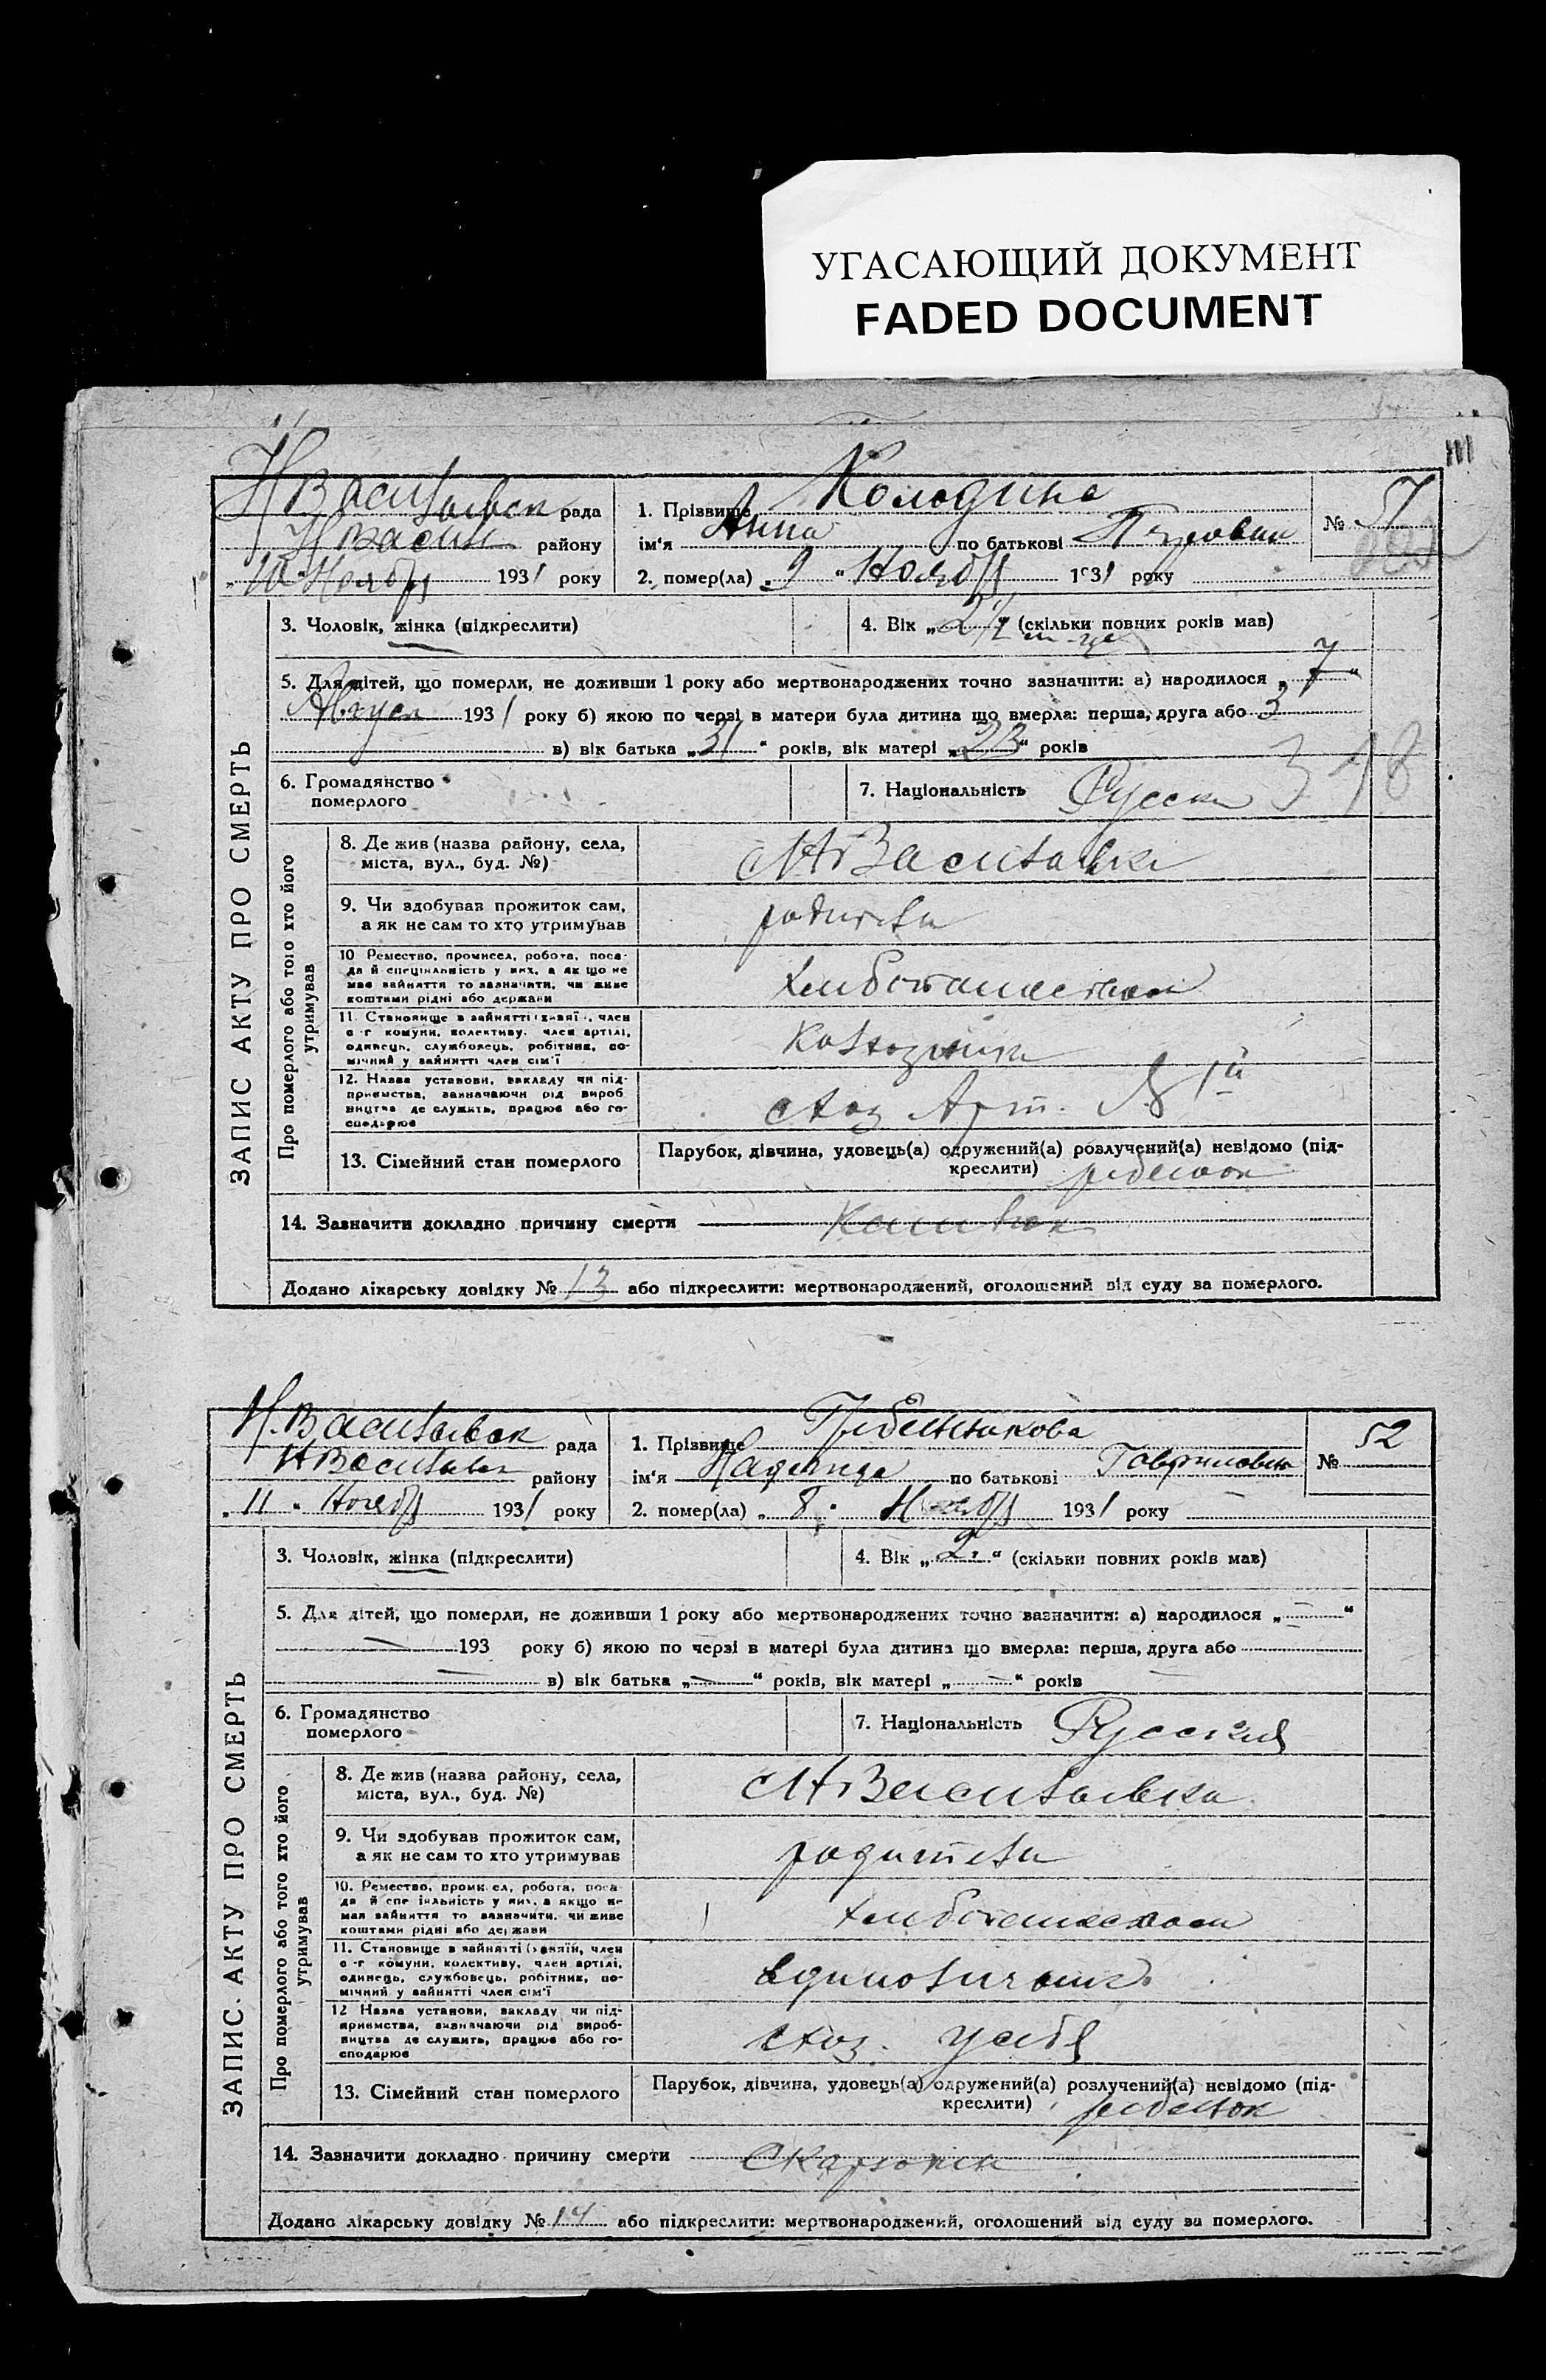 УГАСАЮЩИЙ ДОКУМЕНТ
FADED DOCUMENT
Н Васильевск рада
Н Васил району
„10“ Ноябр 1931 року
1. Прізвище Колодина
ім'я Анна по батькові
2. помер(ла) „9“ Ноябр 1931 року
№ 51
3. Чоловік, жінка (підкреслити)
4. Вік „2½“ (скільки повних років мав)
5. Для дітей, що померли, не доживши 1 року або мертвонароджених точно зазначити: а) народилося „7“
Август 1931 року б) якою по черзі в матери була дитина що вмерла: перша, друга або 3
в) вік батька „31“ років, вік матері „23“ років
6. Громадянство
померлого
7. Національність Русски
318
ЗАПИС АКТУ ПРО СМЕРТЬ
Про померлого або того хто його
утримував
8. Де жив (назва району, села,
міста, вул., буд. №)
с Н Васильевка
9. Чи здобував прожиток сам,
а як не сам то хто утримував
родители
10 Ремество, промисел, робота, поса-
да й спеціальність у них, а як що не
мав зайняття то зазначити, чи живе
коштами рідні або держави
хлибопашеством
11. Становище в зайнятті (хазяїн, член
с-г комуни, колективу, член артілі,
одинець, службовець, робітник, по-
мічний у зайнятті член сім'ї
Колхозники
12. Назва установи, закладу чи під-
приємства, зазначаючи рід вироб
ництва де служить, працює або го-
сподарює
схоз Арт. № 1й
13. Сімейний стан померлого
Парубок, дівчина, удовець(а) одружений(а) розлучений(а) невідомо (під-
креслити) ребенок
14. Зазначити докладно причину смерти
Додано лікарську довідку № 13 або підкреслити: мертвонароджений, оголошений від суду за померлого.
Н. Васильевск рада
Н Васильевск району
„11“ Ноябр 1931 року
1. Прізвище Гребенникова
ім'я Надежда по батькові Гавриловна
2. помер(ла) „8“ Ноябр 1931 року
№ 52
3. Чоловік, жінка (підкреслити)
4. Вік „2“ (скільки повних років мав)
5. Для дітей, що померли, не доживши 1 року або мертвонароджених точно зазначити: а) народилося „—“
— 193 року б) якою по черзі в матері була дитина що вмерла: перша, друга або
— в) вік батька „—“ років, вік матері „—“ років
6. Громадянство
померлого
7. Національність Русския
ЗАПИС АКТУ ПРО СМЕРТЬ
Про померлого або того хто його
утримував
8. Де жив (назва району, села,
міста, вул., буд. №)
с Н Васильевка
9. Чи здобував прожиток сам,
а як не сам то хто утримував
родители
10. Ремество, промисел, робота, поса-
да й спеціальність у них, а якщо не
мав зайняття то зазначити, чи живе
коштами рідні або держави
хлибопашеством
11. Становище в зайнятті (хазяїн, член
с-г комуни, колективу, член артілі,
одинець, службовець, робітник, по-
мічний у зайнятті член сім'ї
единоличник
12 Назва установи, закладу чи під-
приємства, зазначаючи рід вироб-
ництва де служить, працює або го-
сподарює
схоз. у себя
13. Сімейний стан померлого
Парубок, дівчина, удовець(а) одружений(а) розлучений(а) невідомо (під-
креслити) ребенок
14. Зазначити докладно причину смерти
Додано лікарську довідку № 14 або підкреслити: мертвонароджений, оголошений від суду за померлого.